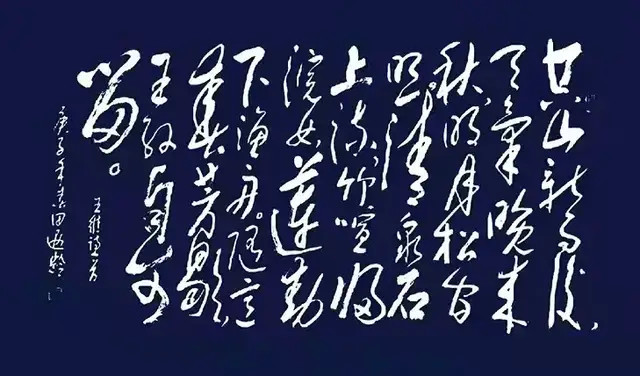 空山新雨後,
天氣晚来
秋,明月松间
照清泉石
上流竹喧归
浣女莲动
下渔舟。随意
春芳歇,
王孙自可
留。
王维诗
庚子年